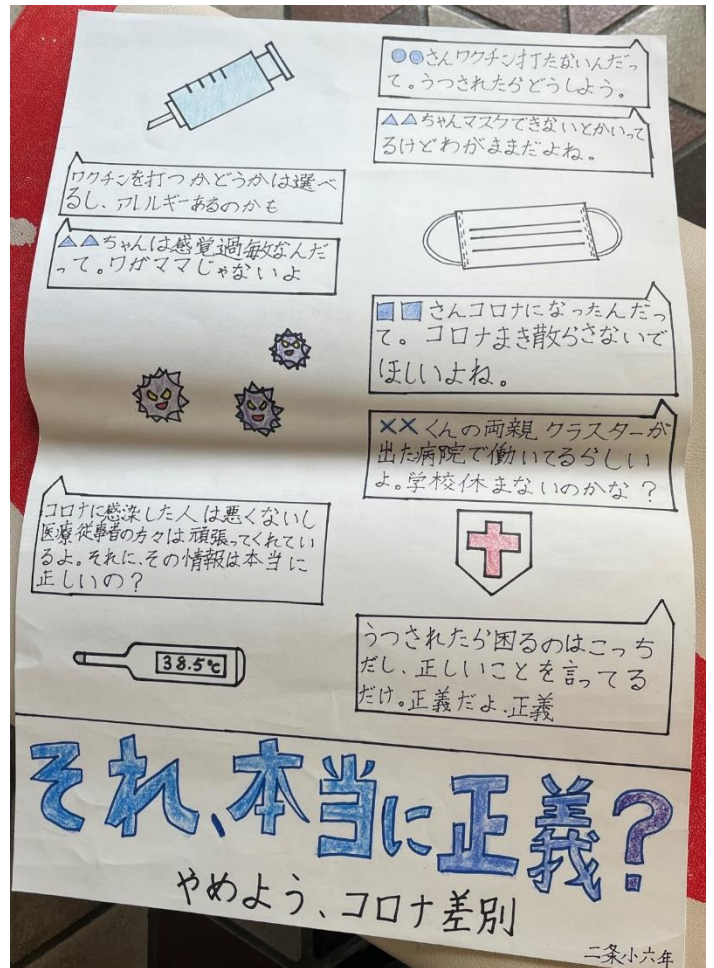 ●●さんワクチン打たないんだっ
て。うつされたらどうしよう。
▲▲ちゃんマスクできないとかいって
るけどわがままだよね。
ワクチンを打つかどうかは選べ
るし、アレルギーあるのかも
▲▲ちゃんは感覚過敏なんだ
って。ワガママじゃないよ
■■さんコロナになったんだっ
て。コロナまき散らさないで
ほしいよね。
××くんの両親クラスターが
出た病院で働いてるらしい
よ。学校休まないのかな?
コロナに感染した人は悪くないし
医療従事者の方々は頑張ってくれてい
るよ。それに、その情報は本当に
正しいの?
38.5℃
うつされたら困るのはこっち
だし、正しいことを言ってる
だけ。正義だよ、正義
それ、本当に正義?
やめよう、コロナ差別
二条小六年